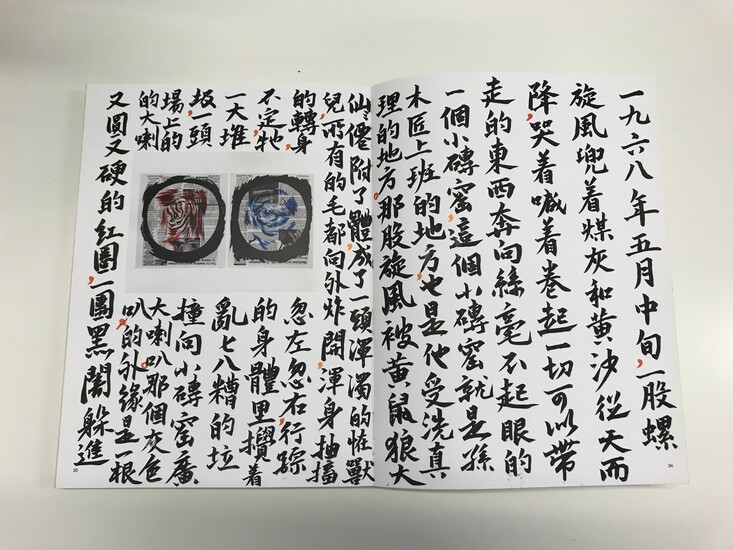 一九六八年五月中旬,一股螺
旋風兜着煤灰和黄沙從天而
降,哭着喊着卷起一切可以帶
走的東西奔向絲毫不起眼的
一個小磚窑,這個小磚窑就是孫
木匠上班的地方,也是他受洗真
理的地方。那股旋風被黄鼠狼大
34
仙僊附了體,成了一頭渾濁的怪獸
兒,所有的毛都向外炸開,渾身抽搐
的轉身,忽左忽右,行踪
不定,牠的身體里攪着
一大堆亂七八糟的垃
圾,一頭撞向小磚窑廣
場上的大喇叭。那個灰色
的大喇叭的外緣是一根
又圓又硬的紅圈,一團黑闇躲進
35